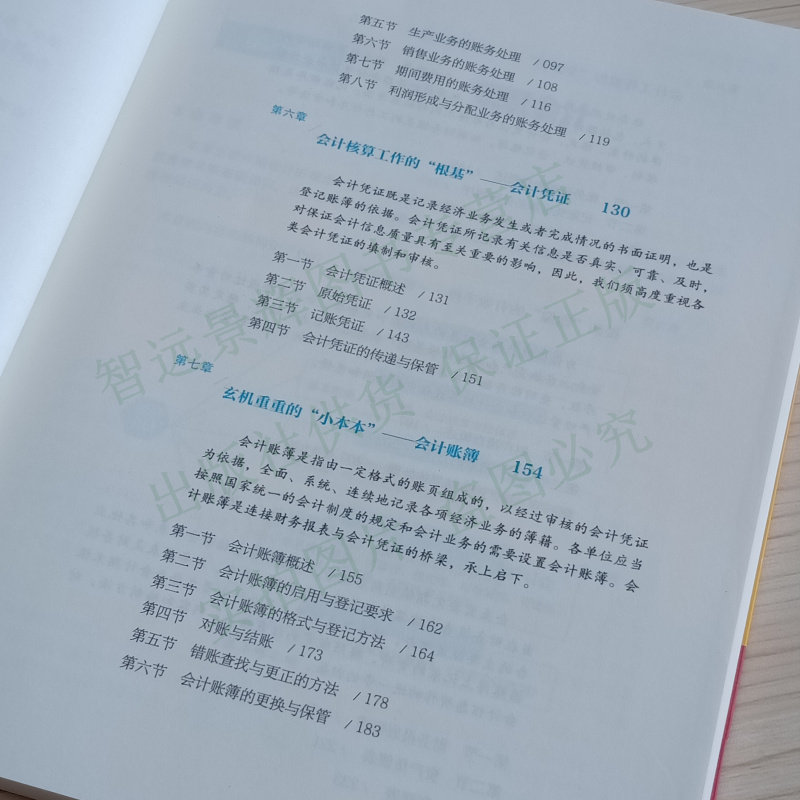 第五节 生产业务的账务处理 / 097
第六节 销售业务的账务处理 / 108
第七节 期间费用的账务处理 / 116
第八节 利润形成与分配业务的账务处理 / 119
第六章
会计核算工作的“根基”——会计凭证 130
会计凭证既是记录经济业务发生或者完成情况的书面证明，也是
登记账簿的依据。会计凭证所记录有关信息是否真实、可靠、及时，
对保证会计信息质量具有至关重要的影响，因此，我们须高度重视各
类会计凭证的填制和审核。
第一节 会计凭证概述 / 131
第二节 原始凭证 / 132
第三节 记账凭证 / 143
第四节 会计凭证的传递与保管 / 151
第七章
玄机重重的“小本本”——会计账簿 154
会计账簿是指由一定格式的账页组成的，以经过审核的会计凭证
为依据，全面、系统、连续地记录各项经济业务的簿籍。各单位应当
按照国家统一的会计制度的规定和会计业务的需要设置会计账簿。会
计账簿是连接财务报表与会计凭证的桥梁，承上启下。
第一节 会计账簿概述 / 155
第二节 会计账簿的启用与登记要求 / 162
第三节 会计账簿的格式与登记方法 / 164
第四节 对账与结账 / 173
第五节 错账查找与更正的方法 / 178
第六节 会计账簿的更换与保管 / 183
智远景辉图书专营店
出版社供货 保证正版
实拍图片 盗图必究